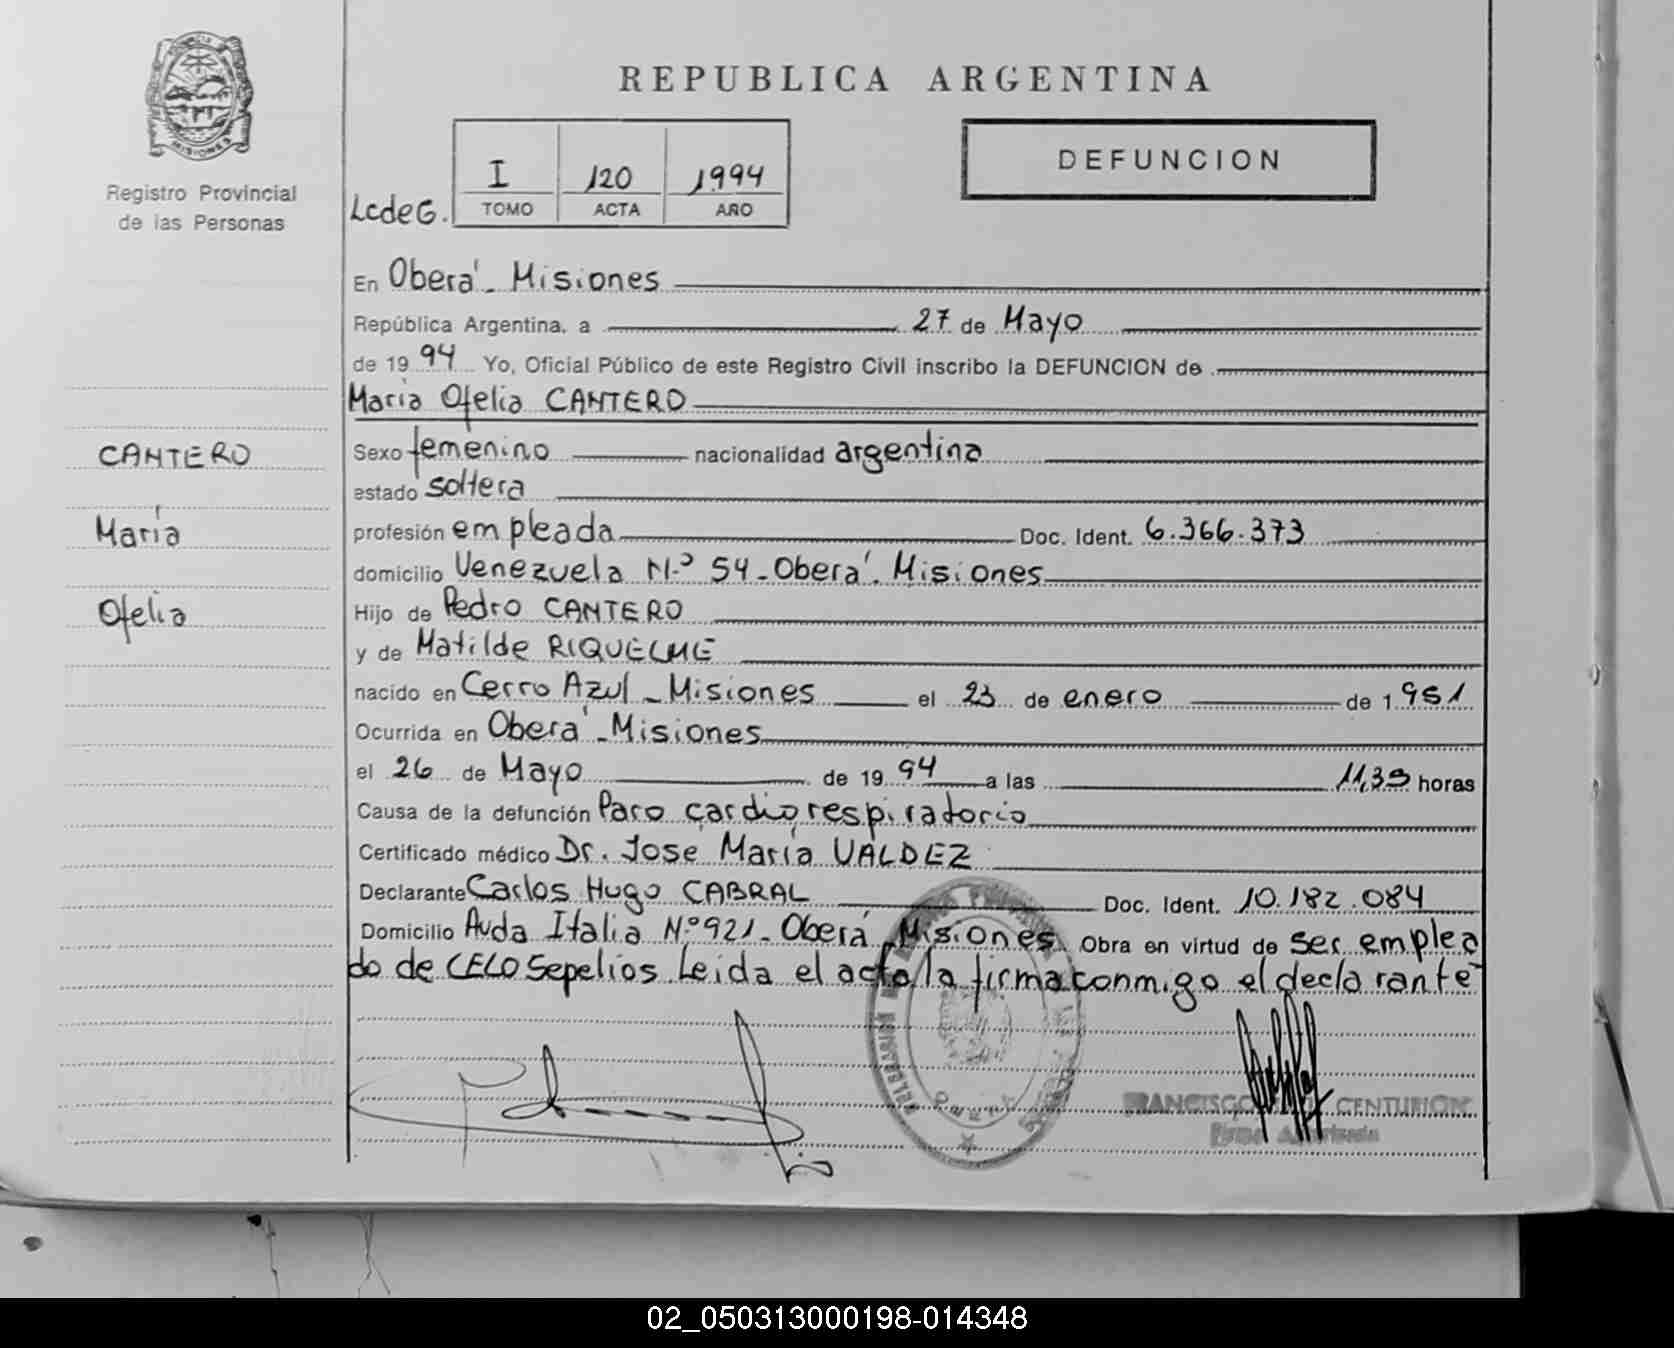 REPUBLICA ARGENTINA
MISIONES
Registro Provincial
de las Personas
LcdeG.
I 120 1994
TOMO ACTA AÑO
DEFUNCION
En Oberá - Misiones
República Argentina, a 27 de Mayo
de 19 94 Yo, Oficial Público de este Registro Civil inscribo la DEFUNCION de
María Ofelia CANTERO
CANTERO
María
Ofelia
Sexo femenino nacionalidad argentina
estado soltera
profesión empleada Doc. Ident. 6.366.373
domicilio Venezuela N.º 54 - Oberá. Misiones
Hijo de Pedro CANTERO
y de Matilde RIQUELME
nacido en Cerro Azul - Misiones el 23 de enero de 1.951
Ocurrida en Oberá - Misiones
el 26 de Mayo de 19 94 a las 11,35 horas
Causa de la defunción Paro cardio respiratorio
Certificado médico Dr. Jose María VALDEZ
Declarante Carlos Hugo CABRAL Doc. Ident. 10.182.084
Domicilio Avda Italia N.º 921 - Oberá - Misiones Obra en virtud de ser emplea
do de CELO Sepelios. Leida el acta, la firma conmigo el declarante
FRANCISCO CENTURION
Firma Autorizada
02_050313000198-014348